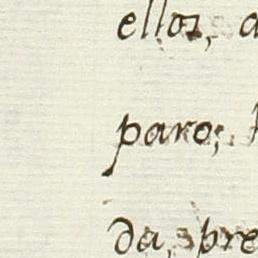 ellos, a
paro;
da, pre